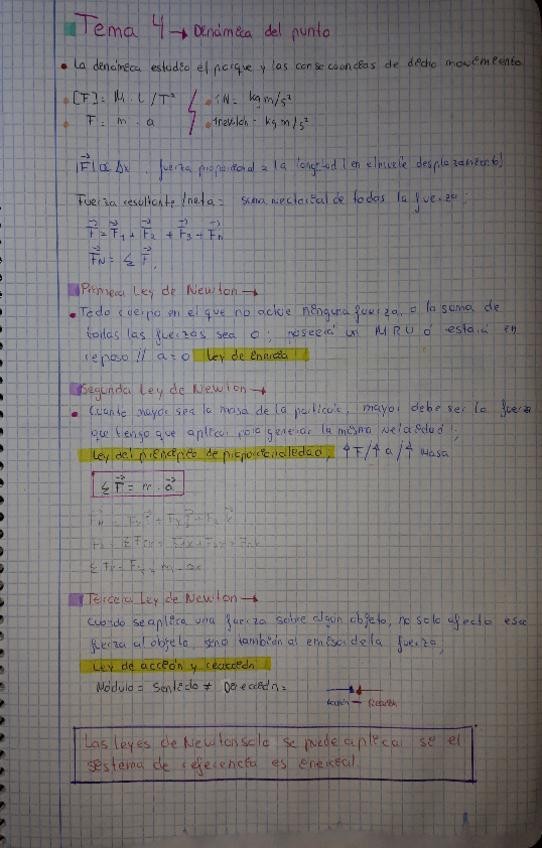 Tema 4 → Dinámica del punto
• La dinámica estudia el porque y las consecuencias de dicho movimiento
• [F] = M · L / T² • 1N = kg m/s²
• F = m · a • 1Newton = kg m/s²
|F⃗| α Δx, fuerza proporcional a la longitud (en el muelle desplazamiento)
Fuerza resultante / neta = suma vectorial de todas la fuerza;
F⃗ = F⃗₁ + F⃗₂ + F⃗₃ + F⃗n
F⃗N = Σ F⃗
Primera Ley de Newton →
• Todo cuerpo en el que no actúe ninguna fuerza, o la suma de
todas las fuerzas sea 0; poseerá un MRU ó estará en
reposo // a = 0 Ley de inercia
Segunda Ley de Newton →
• Cuante mayor sea la masa de la partícula, mayor debe ser la fuerza
que tengo que aplicar para generar la misma velocidad;
Ley del principio de proporcionalidad, ↑F/↑a/↑ Masa
Σ F⃗ = m · a⃗
Tercera Ley de Newton →
Cuando se aplica una fuerza sobre algún objeto, no solo afecta esa
fuerza al objeto, sino también al emisor de la fuerza,
Ley de acción y reacción
Módulo = Sentido ≠ Dirección =
Acción Reacción
Las leyes de Newton solo se puede aplicar si el
sistema de referencia es inercial